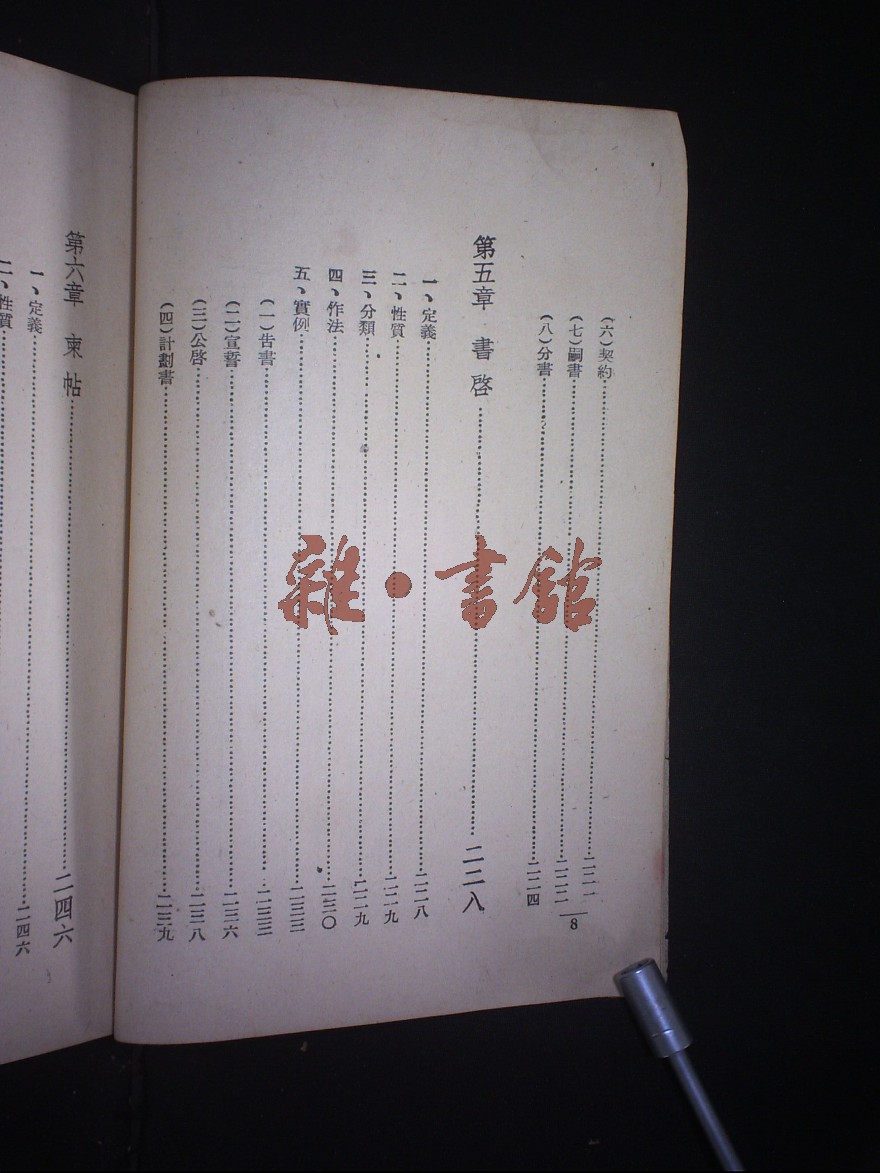 (六)契約……
(七)嗣書……
(八)分書……二二四
第五章 書啓……二二八
一、定義……二二八
二、性質……二二九
三、分類……二二九
四、作法……二三〇
五、實例……二三三
(一)告書……二三三
(二)宣誓……二三六
(三)公啓……二三八
(四)計劃書……二三九
8
第六章 柬帖……二四六
一、定義……二四六
二、性質……
雜・書館